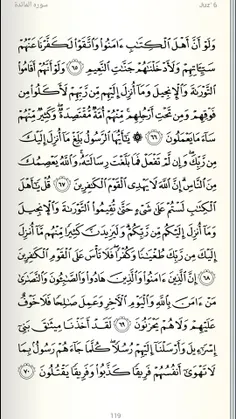 سورة المائدة Juz' 6
وَلَوْ أَنَّ أَهْلَ ٱلْكِتَٰبِ ءَامَنُوا۟ وَٱتَّقَوْا۟ لَكَفَّرْنَا عَنْهُمْ
سَيِّـَٔاتِهِمْ وَلَأَدْخَلْنَٰهُمْ جَنَّٰتِ ٱلنَّعِيمِ ٦٥ وَلَوْ أَنَّهُمْ أَقَامُوا۟
ٱلتَّوْرَىٰةَ وَٱلْإِنجِيلَ وَمَآ أُنزِلَ إِلَيْهِم مِّن رَّبِّهِمْ لَأَكَلُوا۟ مِن
فَوْقِهِمْ وَمِن تَحْتِ أَرْجُلِهِم مِّنْهُمْ أُمَّةٌ مُّقْتَصِدَةٌ وَكَثِيرٌ مِّنْهُمْ
سَآءَ مَا يَعْمَلُونَ ٦٦ ۞ يَٰٓأَيُّهَا ٱلرَّسُولُ بَلِّغْ مَآ أُنزِلَ إِلَيْكَ
مِن رَّبِّكَ وَإِن لَّمْ تَفْعَلْ فَمَا بَلَّغْتَ رِسَالَتَهُۥ وَٱللَّهُ يَعْصِمُكَ
مِنَ ٱلنَّاسِ إِنَّ ٱللَّهَ لَا يَهْدِى ٱلْقَوْمَ ٱلْكَٰفِرِينَ ٦٧ قُلْ يَٰٓأَهْلَ
ٱلْكِتَٰبِ لَسْتُمْ عَلَىٰ شَىْءٍ حَتَّىٰ تُقِيمُوا۟ ٱلتَّوْرَىٰةَ وَٱلْإِنجِيلَ
وَمَآ أُنزِلَ إِلَيْكُم مِّن رَّبِّكُمْ وَلَيَزِيدَنَّ كَثِيرًا مِّنْهُم مَّآ أُنزِلَ
إِلَيْكَ مِن رَّبِّكَ طُغْيَٰنًا وَكُفْرًا فَلَا تَأْسَ عَلَى ٱلْقَوْمِ ٱلْكَٰفِرِينَ
٦٨ إِنَّ ٱلَّذِينَ ءَامَنُوا۟ وَٱلَّذِينَ هَادُوا۟ وَٱلصَّٰبِـُٔونَ وَٱلنَّصَٰرَىٰ
مَنْ ءَامَنَ بِٱللَّهِ وَٱلْيَوْمِ ٱلْءَاخِرِ وَعَمِلَ صَٰلِحًا فَلَا خَوْفٌ
عَلَيْهِمْ وَلَا هُمْ يَحْزَنُونَ ٦٩ لَقَدْ أَخَذْنَا مِيثَٰقَ بَنِىٓ
إِسْرَٰٓءِيلَ وَأَرْسَلْنَآ إِلَيْهِمْ رُسُلًا كُلَّمَا جَآءَهُمْ رَسُولٌۢ بِمَا
لَا تَهْوَىٰٓ أَنفُسُهُمْ فَرِيقًا كَذَّبُوا۟ وَفَرِيقًا يَقْتُلُونَ ٧٠
119